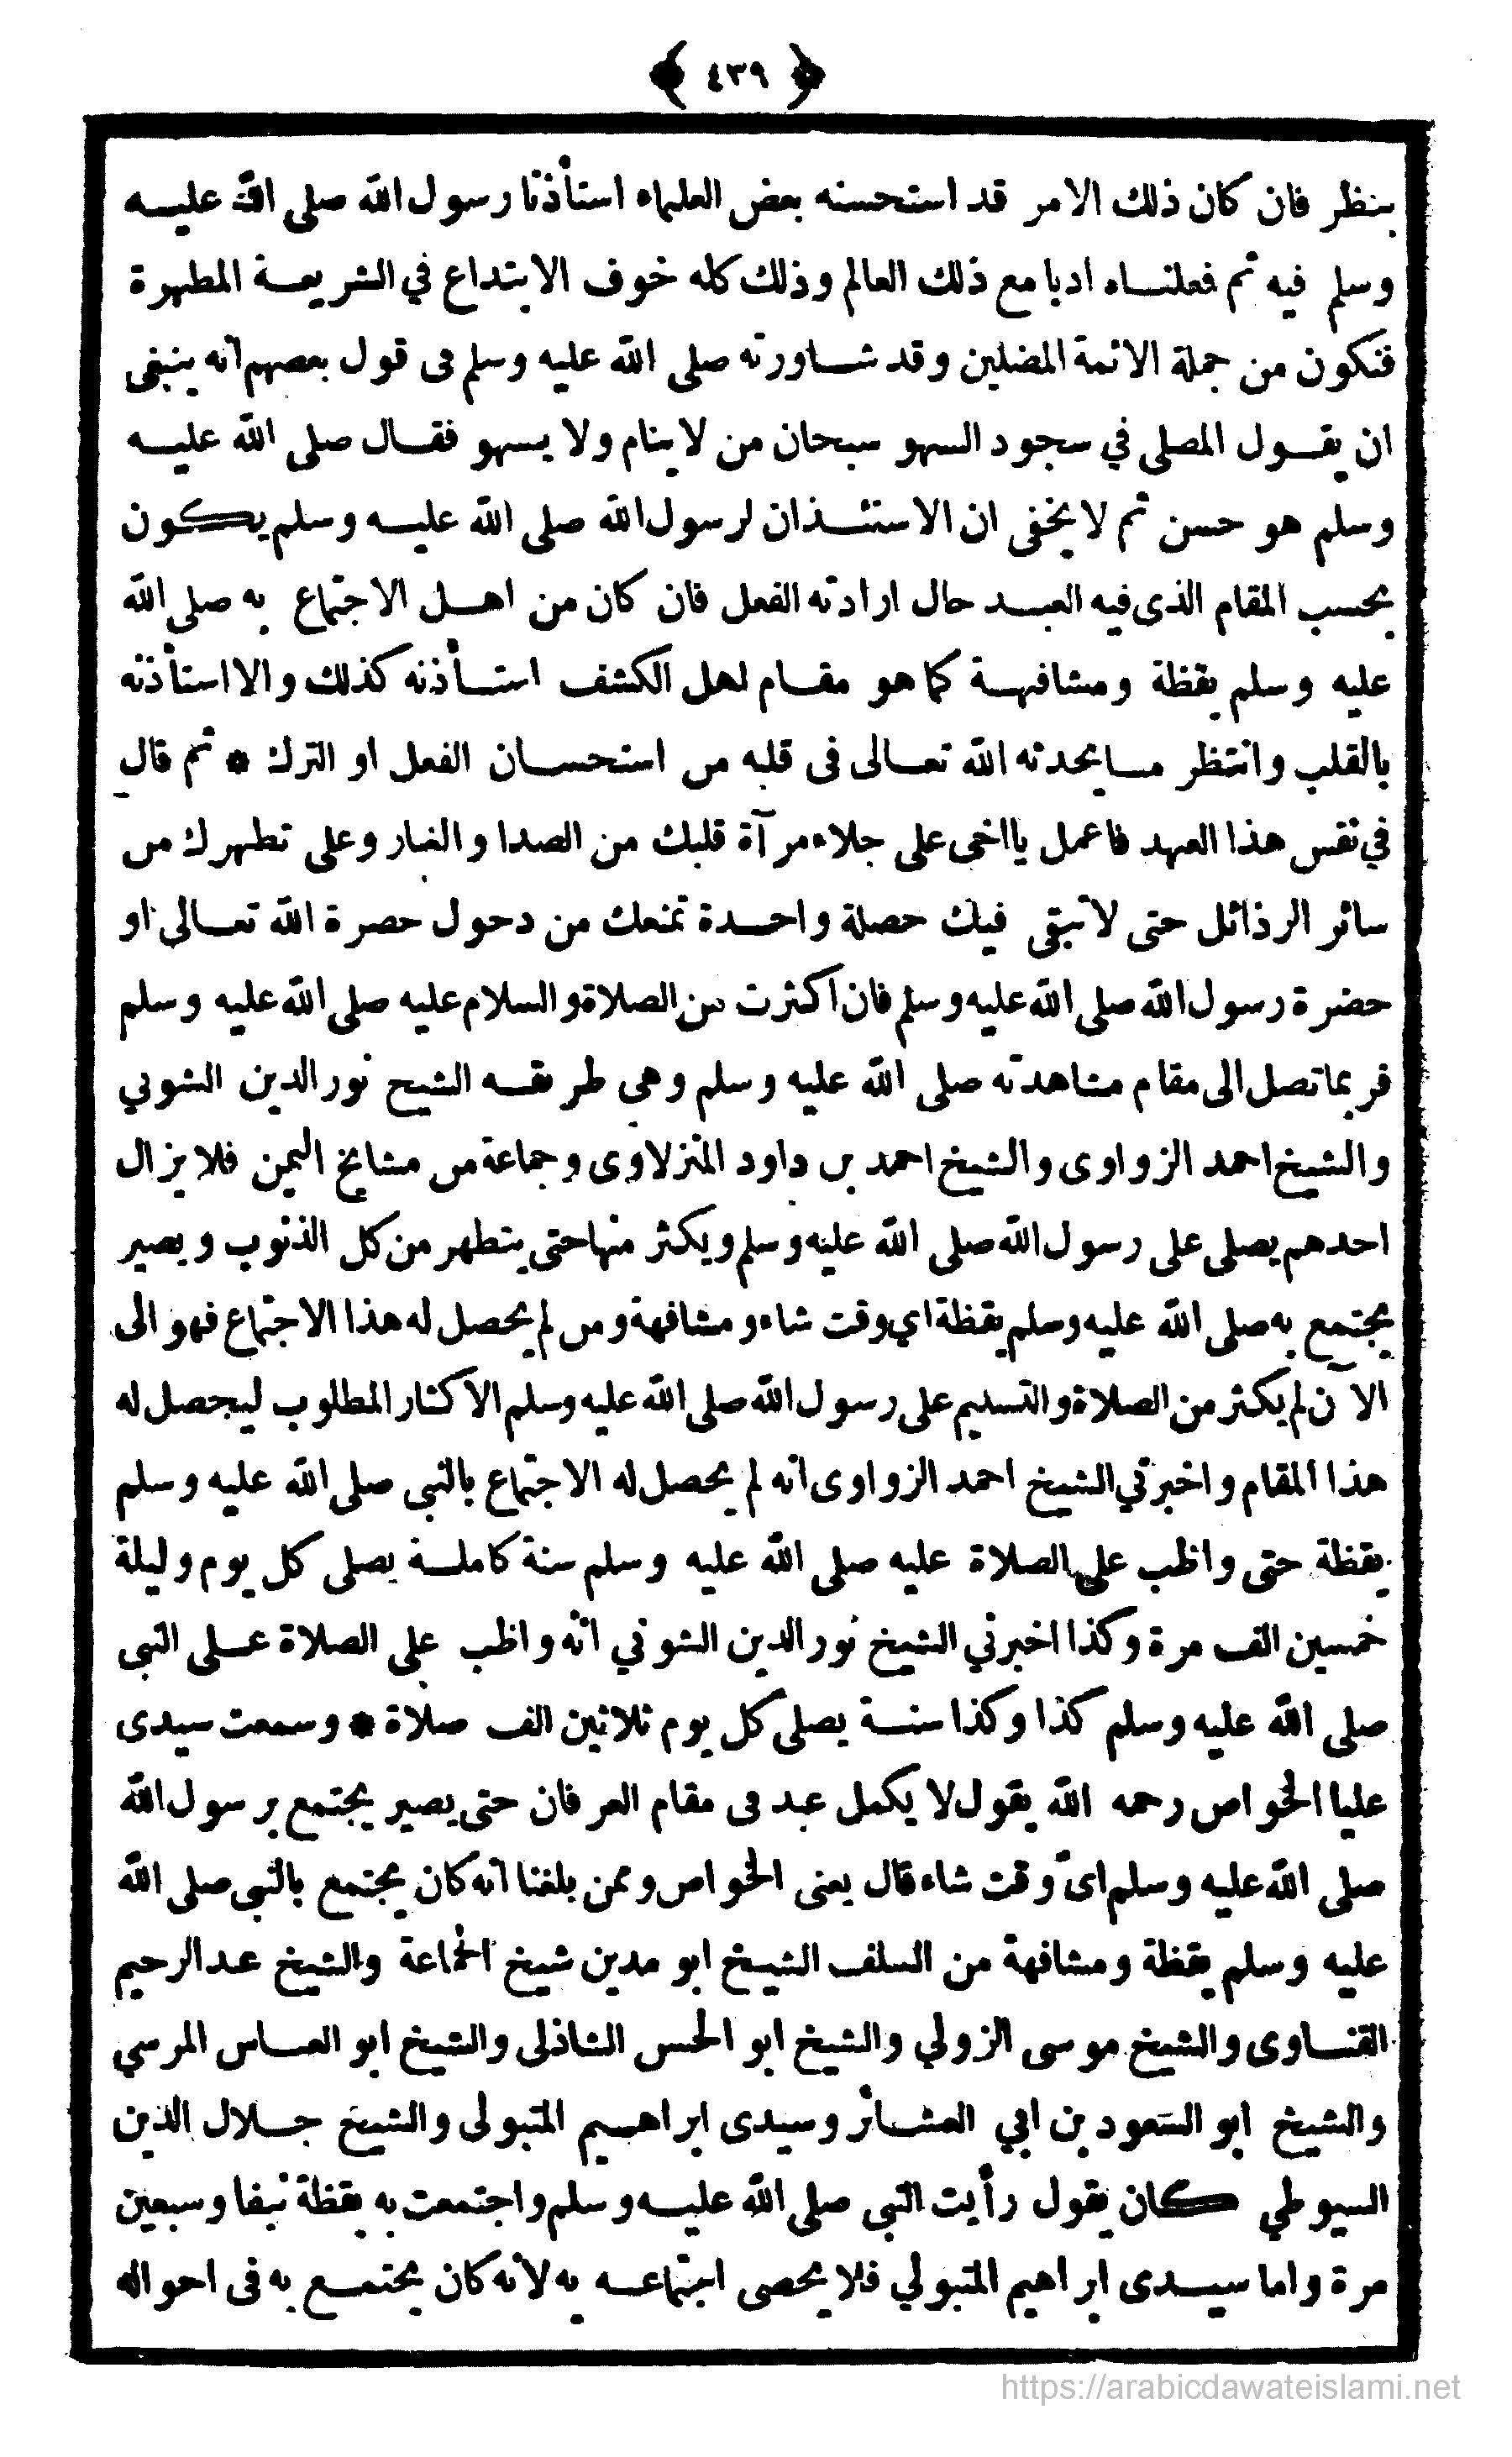 ﴿ ٤٣٩ ﴾
بنظر فان كان ذلك الامر قد استحسنه بعض العلماء استأذنا رسول الله صلى الله عليه
وسلم فيه ثم فعلناه ادبا مع ذلك العالم وذلك كله خوف الابتداع في الشريعة المطهرة
فنكون من جملة الائمة المضلين وقد شاورته صلى الله عليه وسلم فى قول بعضهم انه ينبغى
ان يقول المصلى في سجود السهو سبحان من لا ينام ولا يسهو فقال صلى الله عليه
وسلم هو حسن ثم لا يخفى ان الاستئذان لرسول الله صلى الله عليه وسلم يكون
بحسب المقام الذى فيه العبد حال ارادته الفعل فان كان من اهل الاجتماع به صلى الله
عليه وسلم يقظة ومشافهة كما هو مقام اهل الكشف استأذنه كذلك والا استأذنه
بالقلب وانتظر ما يحدثه الله تعالى فى قلبه من استحسان الفعل او الترك * ثم قال
في نفس هذا العهد فاعمل يا اخى على جلاء مرآة قلبك من الصدا والغبار وعلى تطهرك من
سائر الرذائل حتى لا تبقى فيك خصلة واحدة تمنعك من دخول حضرة الله تعالى او
حضرة رسول الله صلى الله عليه وسلم فان اكثرت من الصلاة والسلام عليه صلى الله عليه وسلم
فربما تصل الى مقام مشاهدته صلى الله عليه وسلم وهي طريقه الشيخ نور الدين الشوني
والشيخ احمد الزواوى والشيخ احمد بن داود المنزلاوى وجماعة من مشايخ اليمن فلا يزال
احدهم يصلى على رسول الله صلى الله عليه وسلم ويكثر منها حتى يتطهر من كل الذنوب ويصير
يجتمع به صلى الله عليه وسلم يقظة اي وقت شاء ومشافهة ومن لم يحصل له هذا الاجتماع فهو الى
الآن لم يكثر من الصلاة والتسليم على رسول الله صلى الله عليه وسلم الاكثار المطلوب ليحصل له
هذا المقام واخبرني الشيخ احمد الزواوى انه لم يحصل له الاجتماع بالنبى صلى الله عليه وسلم
يقظة حتى واظب على الصلاة عليه صلى الله عليه وسلم سنة كاملة يصلى كل يوم وليلة
خمسين الف مرة وكذا اخبرني الشيخ نور الدين الشوني انه واظب على الصلاة على النبى
صلى الله عليه وسلم كذا وكذا سنة يصلى كل يوم ثلاثين الف صلاة * وسمعت سيدى
عليا الخواص رحمه الله يقول لا يكمل عبد فى مقام العرفان حتى يصير يجتمع برسول الله
صلى الله عليه وسلم اىّ وقت شاء قال يعنى الخواص وممن بلغنا انه كان يجتمع بالنبى صلى الله
عليه وسلم يقظة ومشافهة من السلف الشيخ ابو مدين شيخ الجماعة والشيخ عبد الرحيم
القناوى والشيخ موسى الزولي والشيخ ابو الحسن الشاذلى والشيخ ابو العباس المرسي
والشيخ ابو السعود بن ابي العشائر وسيدى ابراهيم المتبولى والشيخ جلال الدين
السيوطي كان يقول رأيت النبى صلى الله عليه وسلم واجتمعت به يقظة نيفا وسبعين
مرة واما سيدى ابراهيم المتبولي فلا يحصى اجتماعه به لانه كان يجتمع به فى احواله
https://arabicdawateislami.net